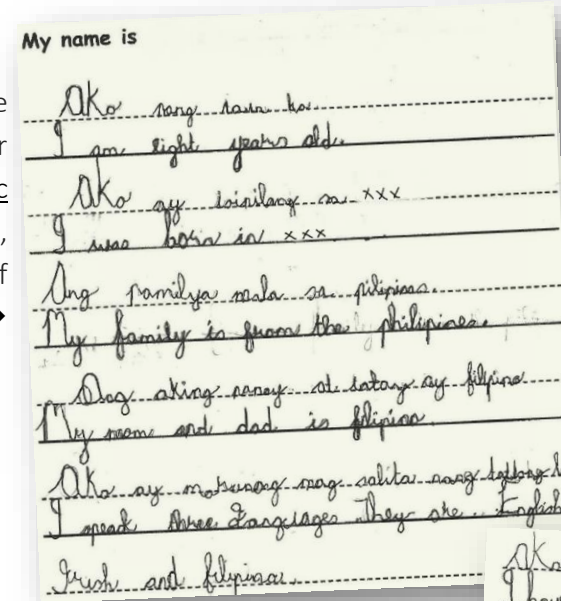 My name is
Ako nang
I am eight years old.
Ako ay isinilang sa xxx
I was born in xxx
Ang pamilya mula sa pilipinas.
My family is from the philipines.
aking nanay at tatay ay filipino
My mom and dad is filipino
Ako ay marunong mag salita nang tatlong
I speak three languages They are English
Irish and filipino.
Ako
I